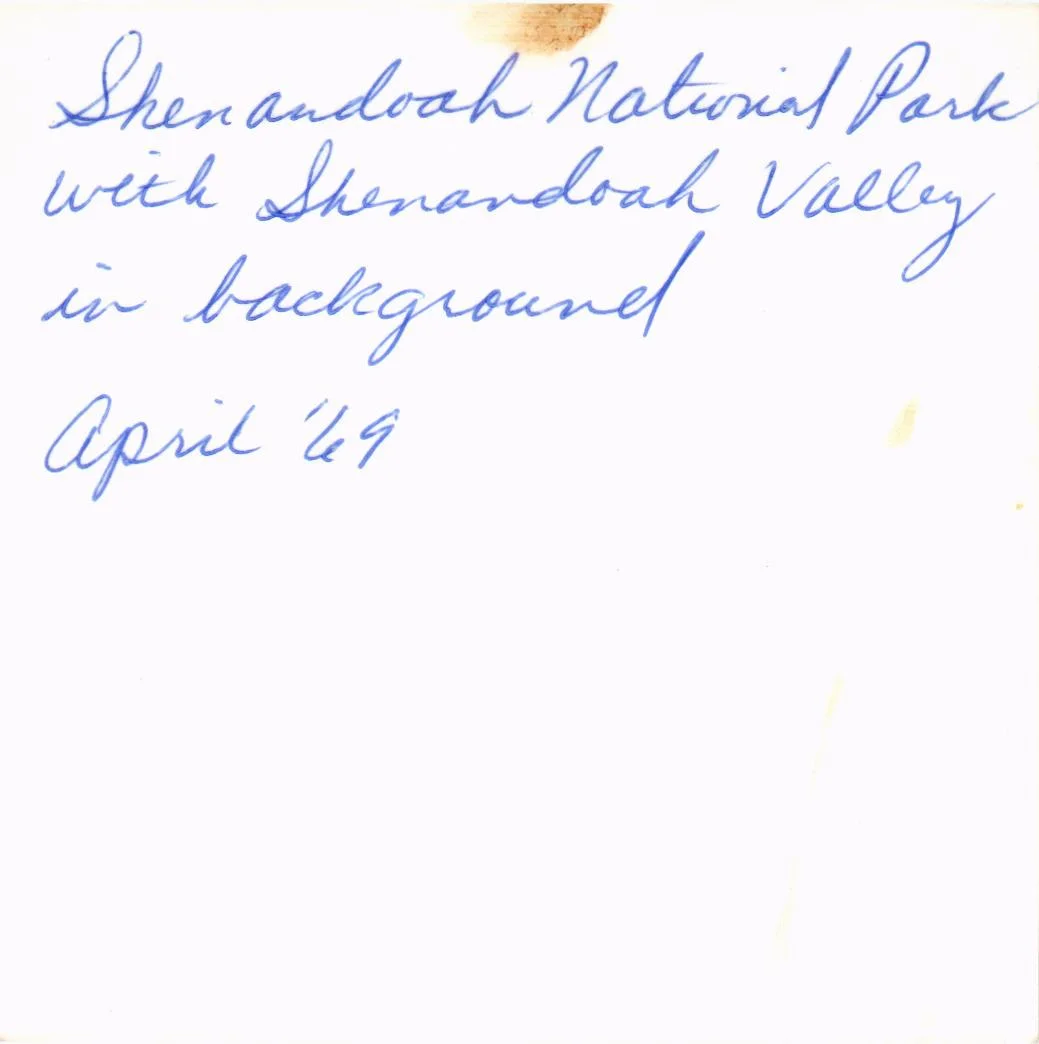 Shenandoah National Park
with Shenandoah Valley
in background
April '69